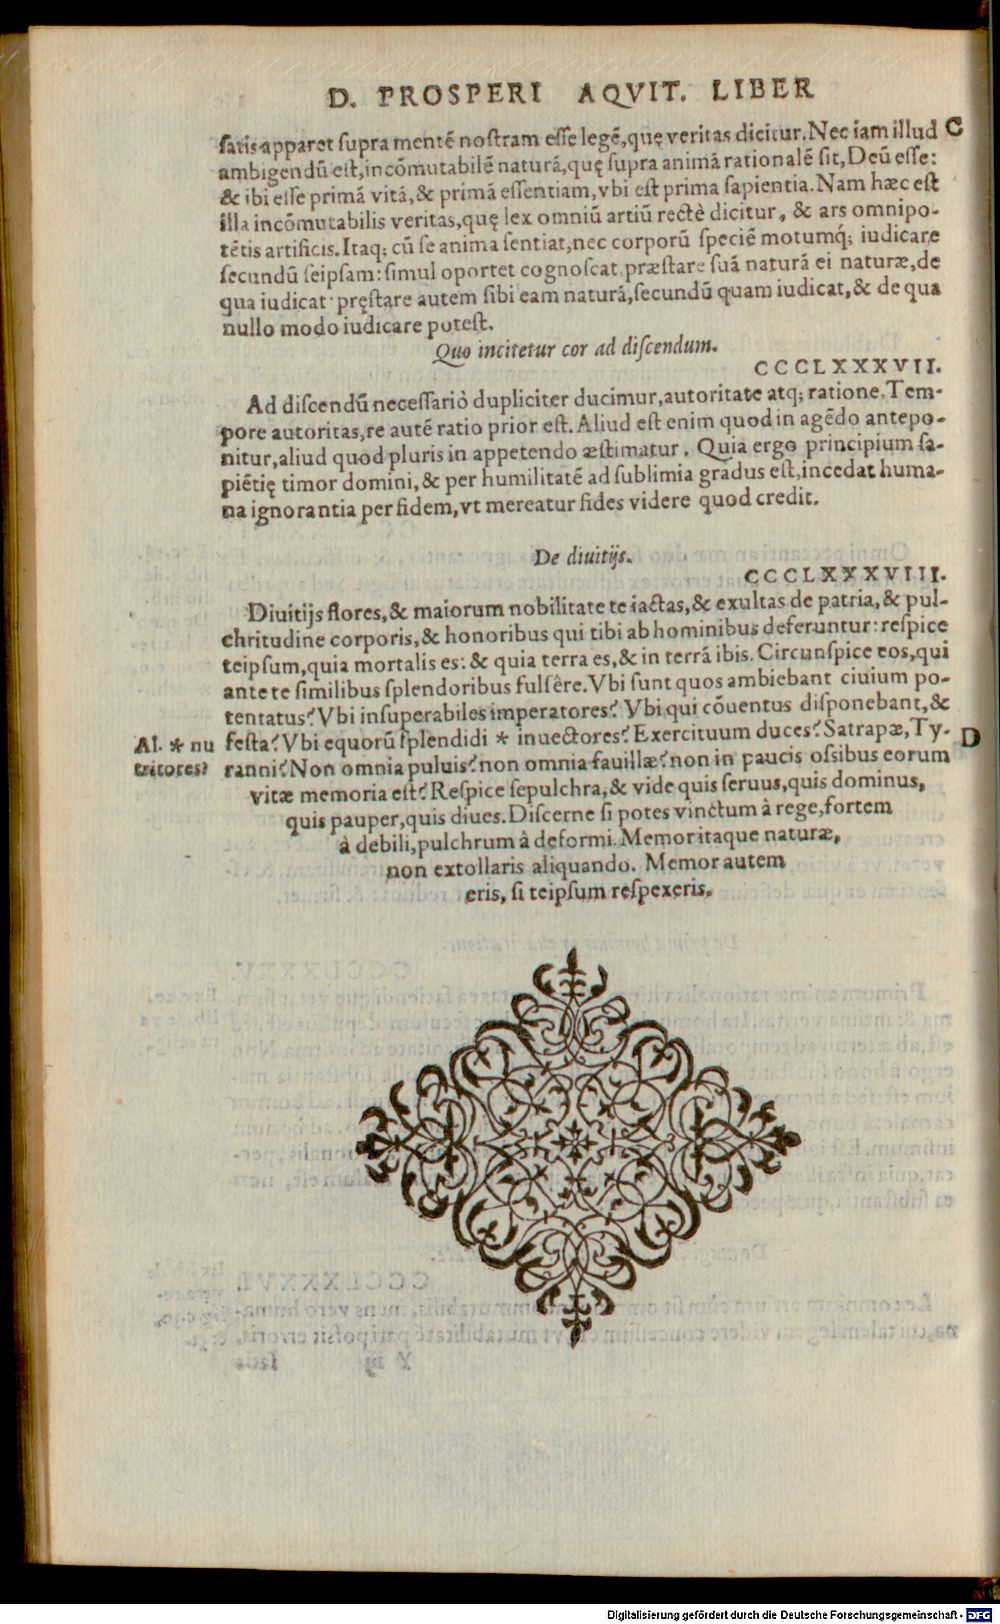 D. PROSPERI AQVIT. LIBER
satis apparet supra mentẽ nostram esse legẽ, quę veritas dicitur. Nec iam illud C
ambigendũ est, incõmutabilẽ naturã, quę supra animã rationalẽ sit, Deũ esse:
& ibi esse primã vitã, & primã essentiam, vbi est prima sapientia. Nam hæc est
illa incõmutabilis veritas, quę lex omniũ artiũ rectè dicitur, & ars omnipo-
tẽtis artificis. Itaq; cũ se anima sentiat, nec corporũ speciẽ motumq́; iudicare
secundũ seipsam: simul oportet cognoscat præstare suã naturã ei naturæ, de
qua iudicat: pręstare autem sibi eam naturã, secundũ quam iudicat, & de qua
nullo modo iudicare potest.
Quo incitetur cor ad discendum.
CCCLXXXVII.
Ad discendũ necessariò dupliciter ducimur, autoritate atq; ratione. Tem-
pore autoritas, re autẽ ratio prior est. Aliud est enim quod in agẽdo antepo-
nitur, aliud quod pluris in appetendo æstimatur. Quia ergo principium sa-
piẽtię timor domini, & per humilitatẽ ad sublimia gradus est, incedat huma-
na ignorantia per fidem, vt mereatur fides videre quod credit.
De diuitijs.
CCCLXXXVIII.
Diuitijs flores, & maiorum nobilitate te iactas, & exultas de patria, & pul-
chritudine corporis, & honoribus qui tibi ab hominibus deferuntur: respice
teipsum, quia mortalis es: & quia terra es, & in terrã ibis. Circunspice eos, qui
ante te similibus splendoribus fulsêre. Vbi sunt quos ambiebant ciuium po-
tentatus? Vbi insuperabiles imperatores? Vbi qui cõuentus disponebant, &
Al. * nu festa? Vbi equorũ splendidi * inuectores? Exercituum duces? Satrapæ, Ty- D
tritores? ranni? Non omnia puluis? non omnia fauillæ? non in paucis ossibus eorum
vitæ memoria est? Respice sepulchra, & vide quis seruus, quis dominus,
quis pauper, quis diues. Discerne si potes vinctum à rege, fortem
à debili, pulchrum à deformi. Memor itaque naturæ,
non extollaris aliquando. Memor autem
eris, si teipsum respexeris.
Digitalisierung gefördert durch die Deutsche Forschungsgemeinschaft - DFG